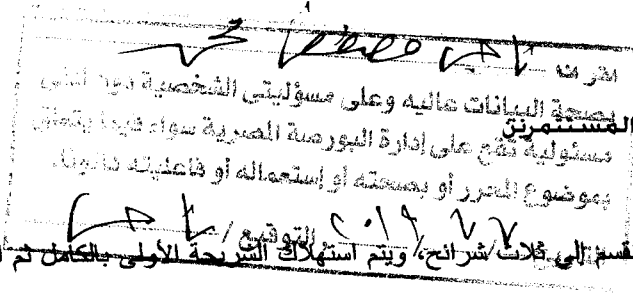 نقر نحن
بصحة البيانات عاليه وعلى مسؤليتى الشخصية دون أدنى
المستثمرين
مسئولية تقع على إدارة البورصة المصرية سواء فيما يتعلق
بموضوع المحرر أو بصحته أو إستعماله أو فاعليته قانونا.
التوقيع /
قسم إلى ثلاث شرائح، ويتم استهلاك الشريحة الأولى بالكامل ثم